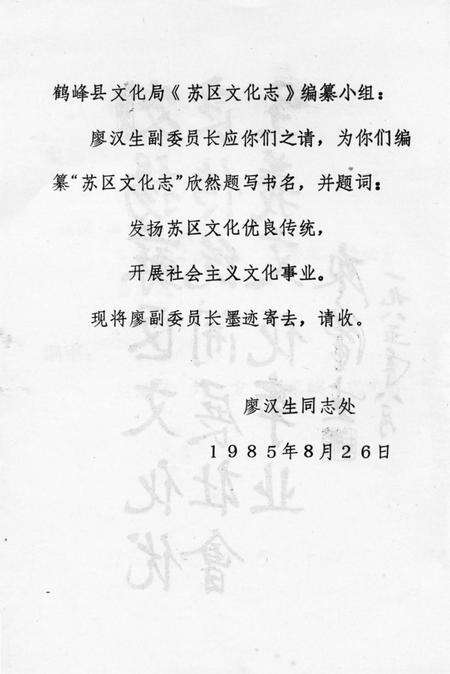 鹤峰县文化局《苏区文化志》编纂小组：
廖汉生副委员长应你们之请，为你们编
纂“苏区文化志”欣然题写书名，并题词：
发扬苏区文化优良传统，
开展社会主义文化事业。
现将廖副委员长墨迹寄去，请收。
廖汉生同志处
1985年8月26日